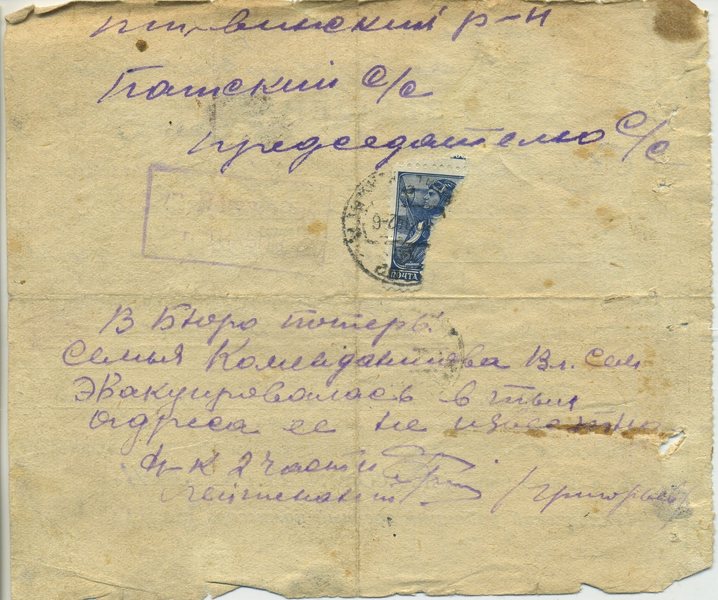 р-н
Пашский с/с
председателю с/с
ПОЧТА
В Бюро потерь
Семья Комендантова Вл. Сем
эвакуировалась в тыл
адреса ее не известно
Н-к 2 части
Лейтенант /Григорьев/